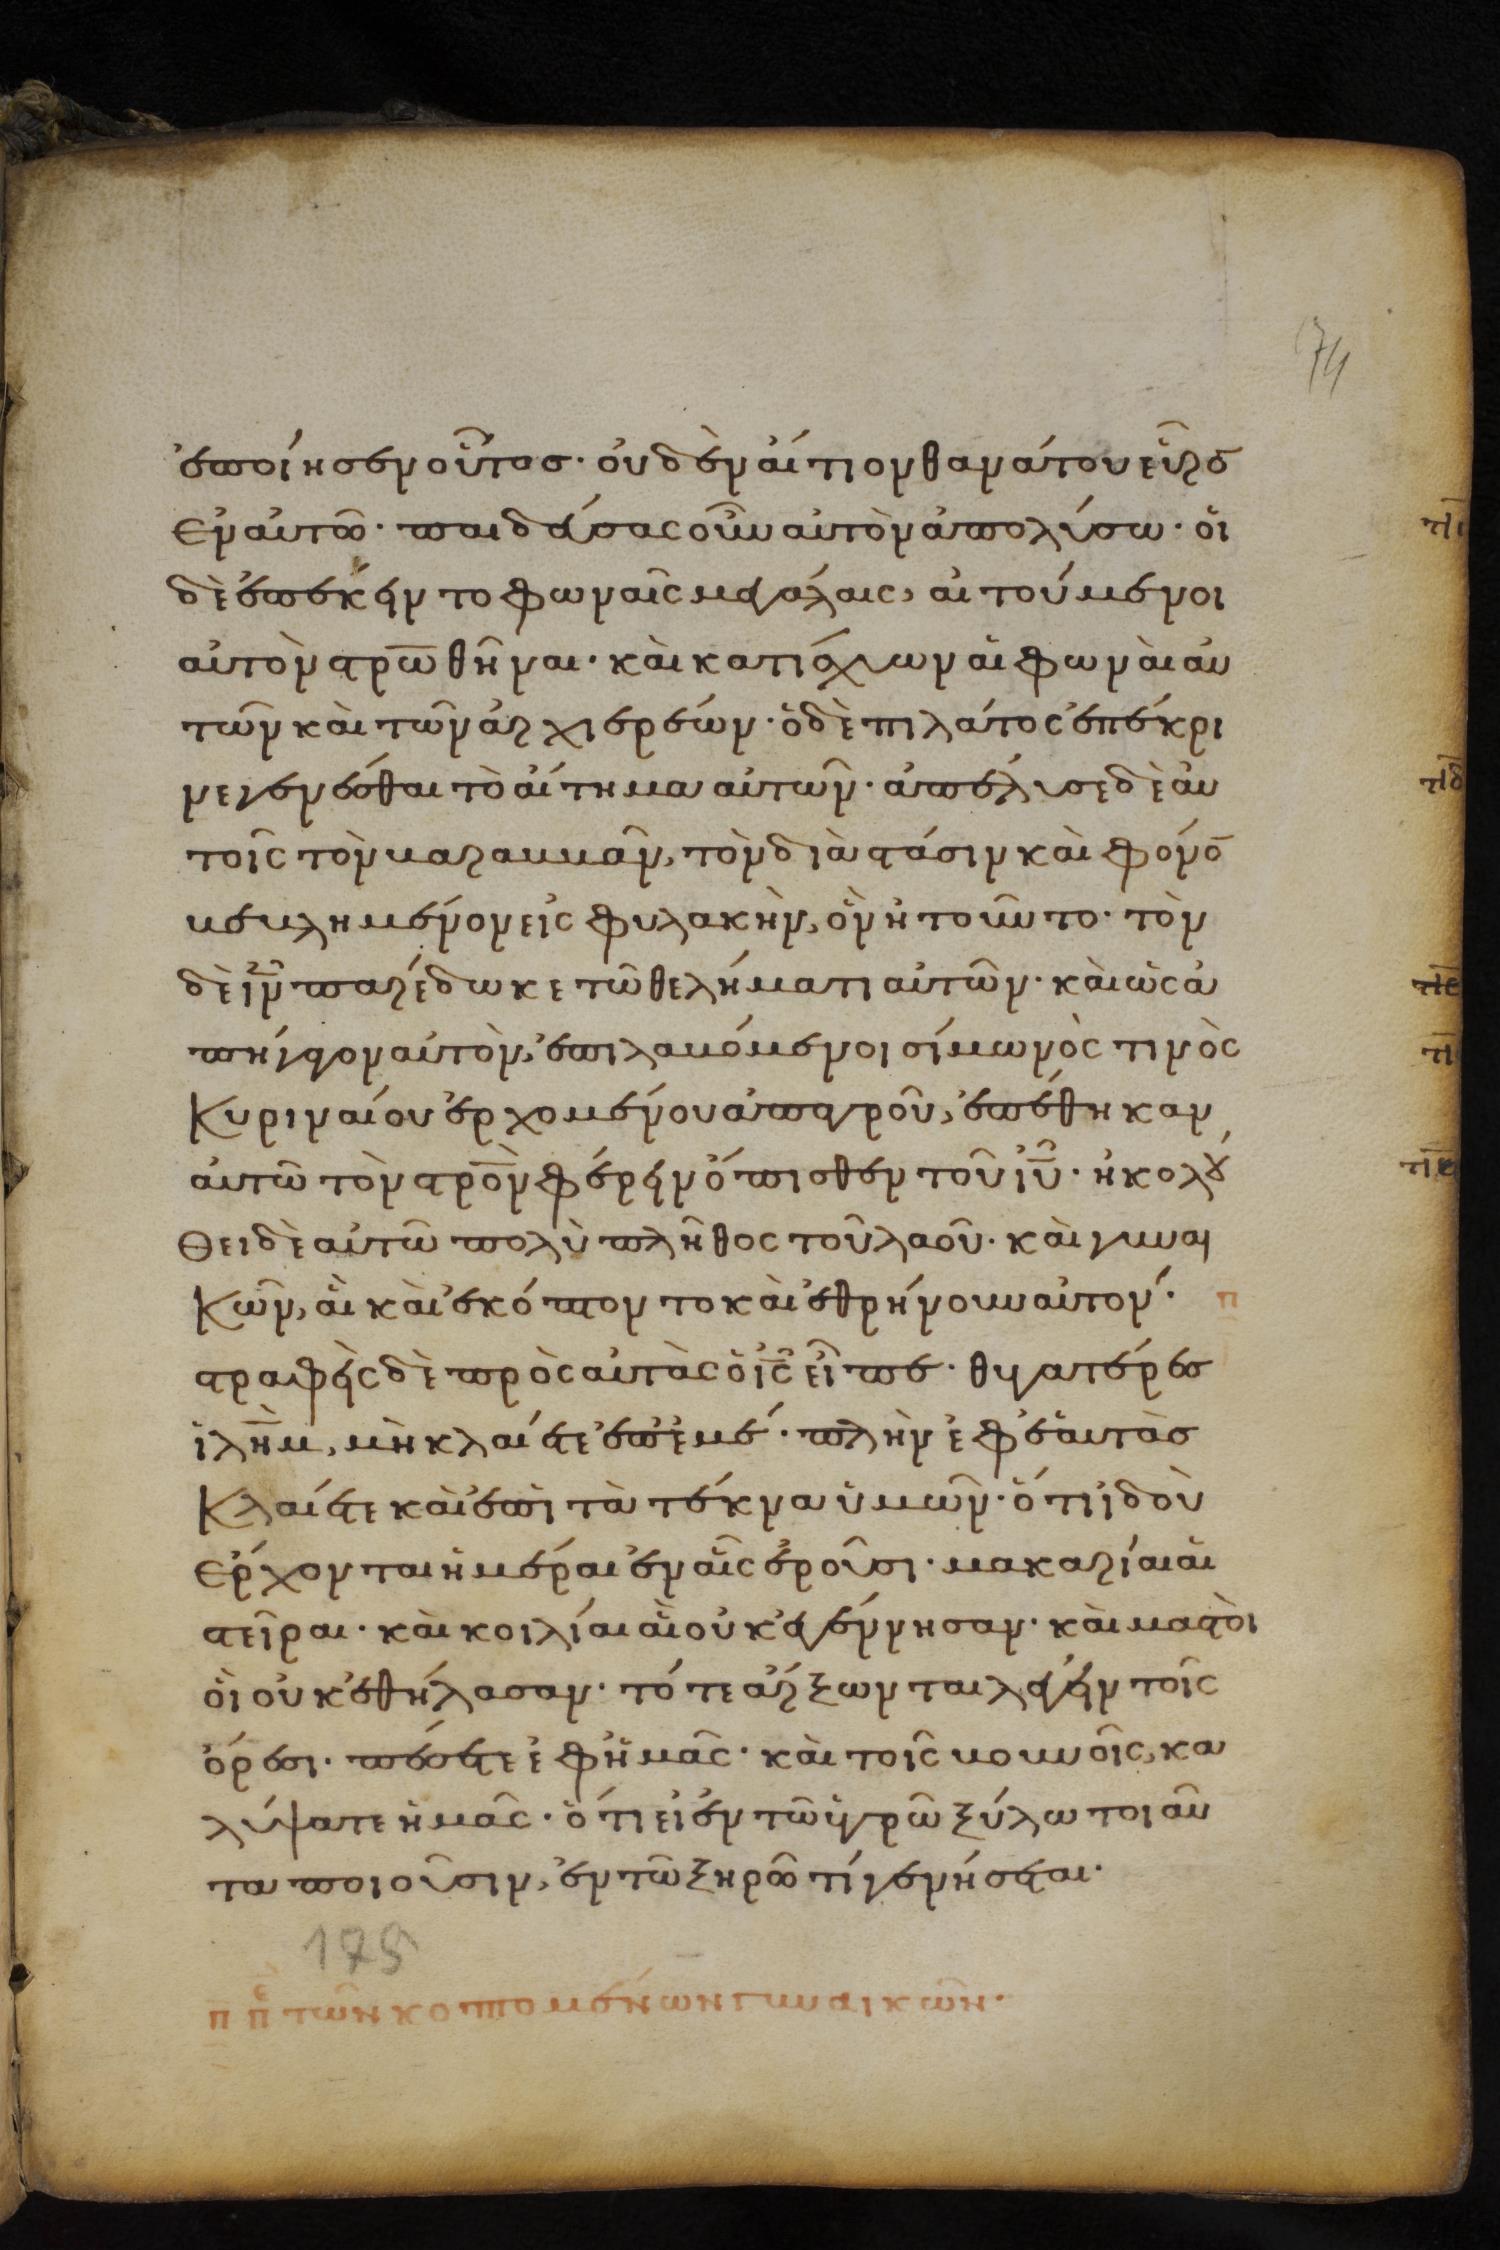 74
ἐποίησεν οὗτος· οὐδὲν αἴτιον θανάτου εὗρο
ἐν αὐτῶ· παιδεύσας οὖν αὐτὸν ἀπολύσω· οἱ
δὲ ἐπέκειντο φωναῖς μεγάλαις, αἰτούμενοι
αὐτὸν στρω̅θῆναι· καὶ κατίσχυων αἱ φωναὶ αὐ
τῶν καὶ τῶν ἀρχιερέων· ὁ δὲ πιλάτος ἐπέκρι
νε γενέσθαι τὸ αἴτημα αὐτῶν· ἀπέλυσε δὲ αὐ
τοῖς τὸν βαραββᾶν, τὸν διὰ στάσιν καὶ φόνο̅
βεβλημένον εἰς φυλακὴν, ὃν ἠτοῦντο· τὸν
δὲ ἰ̅ν̅ παρέδωκε τῶ θελήματι αὐτῶν· καὶ ὡς ἀ
πήγαγον αὐτὸν, ἐπιλαβόμενοι σίμωνὸς τινὸς
Κυριναίου ἐρχομένου ἀπ ἀγροῦ, ἐπέθηκαν
αὐτῶ τὸν στρο̅ν φέρειν ὄπισθεν τοῦ ἰ̅υ̅· ἠκολού
Θει δὲ αὐτῶ πολὺ πλῆθος τοῦ λαοῦ· καὶ γυναι
Κῶν, αἳ καὶ ἐκόπτοντο καὶ ἐθρήνουν αὐτον· π
στραφεὶς δὲ πρὸς αὐτὰς ὁ ἰ̅ς̅ εἶπε· θυγατέρες
ἰλη̅μ, μὴ κλαίετε ἐπ ἐμέ· πλὴν ἐφ ἑαυτὰς
Κλαίετε καὶ ἐπὶ τὰ τέκνα ὑμῶν· ὅτι ἰδοὺ
Ἐρχονται ἡμέραι ἐν αἷς ἐροῦσι· μακαρίαι αἱ
στεῖραι· καὶ κοιλίαι αἳ οὐκ ἐγέννησαν· καὶ μαστοὶ
οἳ οὐκ ἐθήλασαν· τότε ἄρξωνται λέγειν τοῖς
ὄρεσι· πέσετε ἐφ ἡμᾶς· καὶ τοῖς βουνοῖς, κα
λύψατε ἡμᾶς· ὅτι εἰ ἐν τῶ ὑγρῶ ξύλω τοιαῦ
τα ποιοῦσιν, ἐν τῶ ξηρῶ τί γενήσεται·
175
π π̅ε̅ τῶν κοπτομένων γυναικῶν·